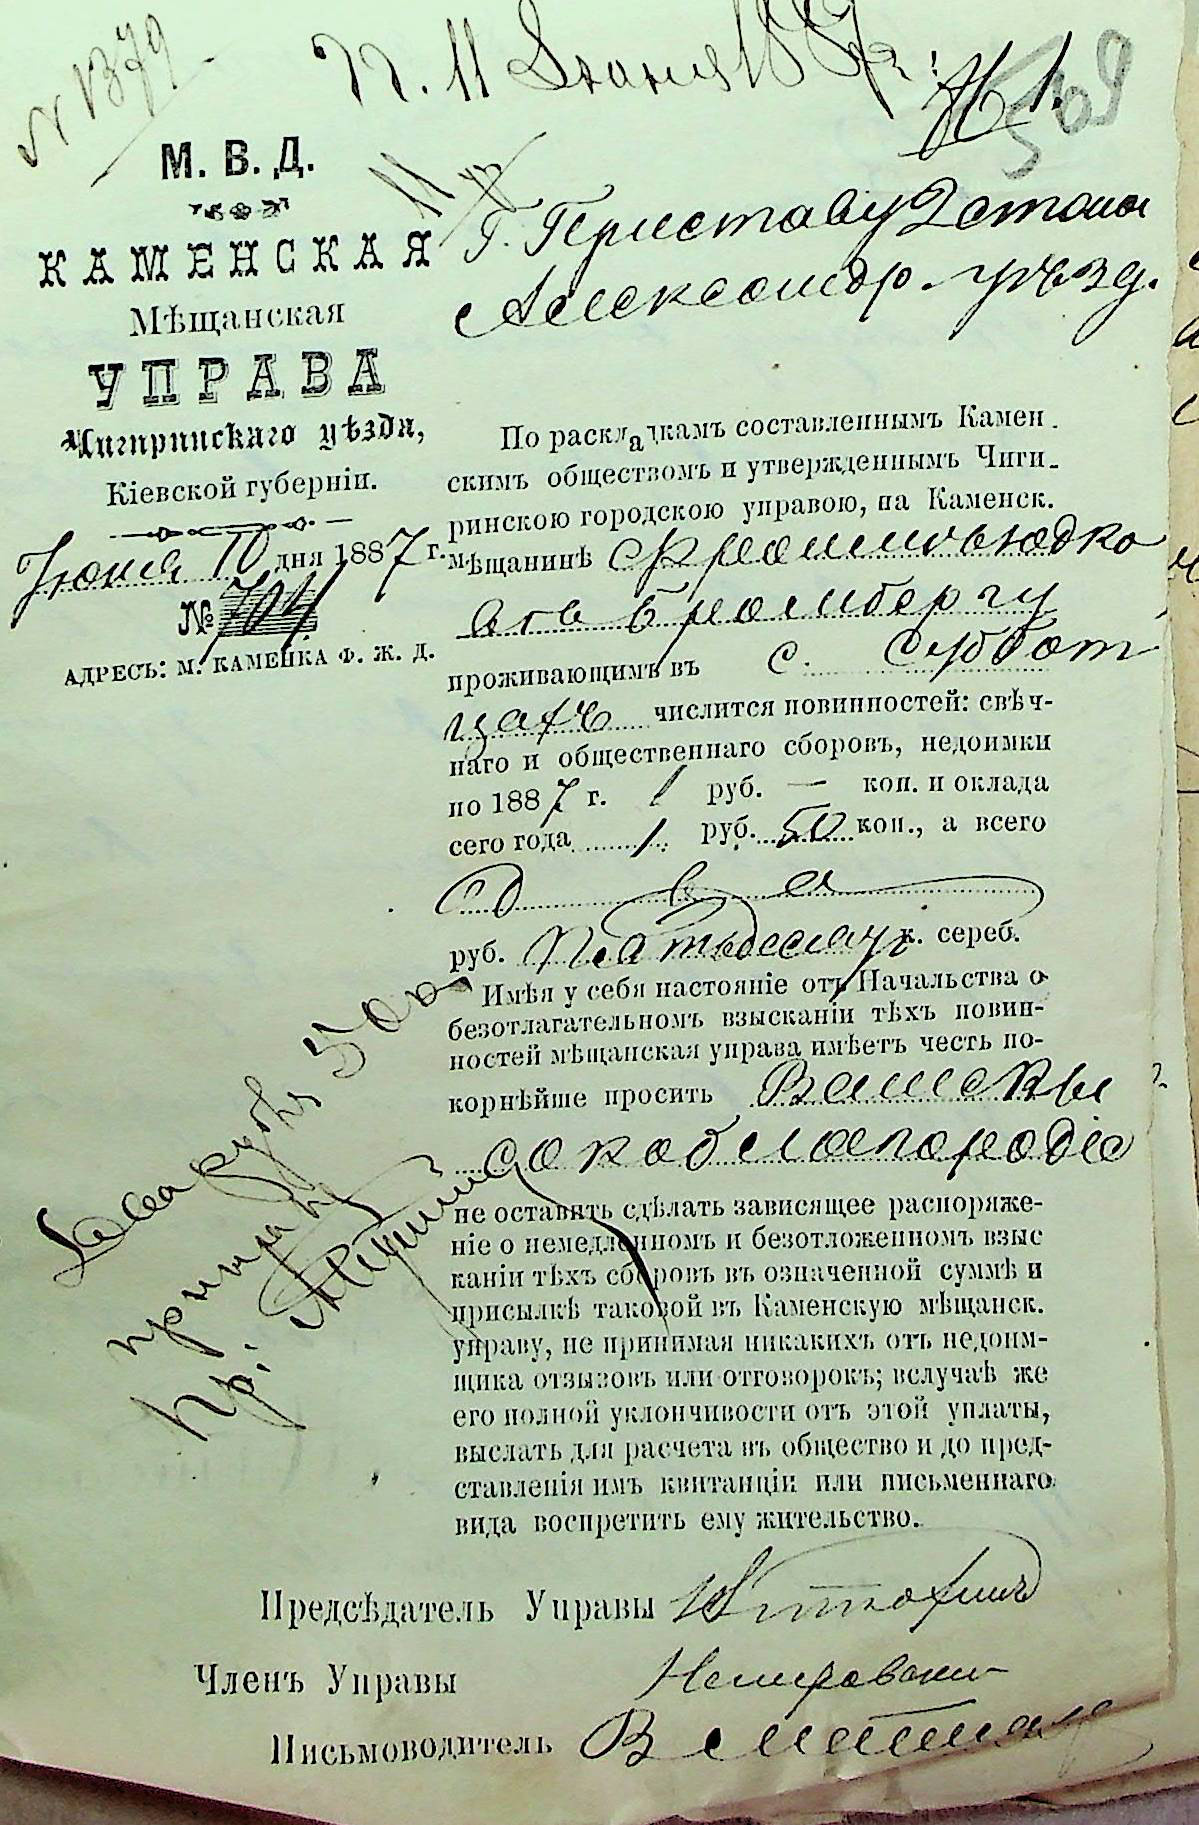 № 1379
П. 11 Июня 1887 г.
№ 1.
509
М. В. Д.
КАМЕНСКАЯ
Мѣщанская
УПРАВА
Чигиринскаго уѣзда,
Кіевской губерніи.
Июня 10 дня 1887 г.
№ 704
АДРЕСЪ: М. КАМЕНКА Ф. Ж. Д.
Г. Приставу 2 стана
Александр. уѣзд.
По раскладкамъ составленнымъ Камен-
скимъ обществомъ и утвержденнымъ Чиги-
ринскою городскою управою, на Каменск.
мѣщанинѣ
Бромбергу
проживающимъ въ с. Суббот
цахъ числится повинностей: свѣч-
наго и общественнаго сборовъ, недоимки
по 1887 г. 1 руб. — коп. и оклада
сего года 1 руб. 50 коп., а всего
Два
руб. Пятьдесятъ к. сереб.
Имѣя у себя настояніе отъ Начальства о
безотлагательномъ взысканіи тѣхъ повин-
ностей мѣщанская управа имѣетъ честь по-
корнѣйше просить Ваше Вы
сокоблагородіе
не оставить сдѣлать зависящее распоряже-
ніе о немедленномъ и безотложенномъ взыс
каніи тѣхъ сборовъ въ означенной суммѣ и
присылкѣ таковой въ Каменскую мѣщанск.
управу, не принимая никакихъ отъ недоим-
щика отзывовъ или отговорокъ; вслучаѣ же
его полной уклончивости отъ этой уплаты,
выслать для расчета въ общество и до пред-
ставленія имъ квитанціи или письменнаго
вида воспретить ему жительство.
Предсѣдатель Управы
Членъ Управы
Письмоводитель